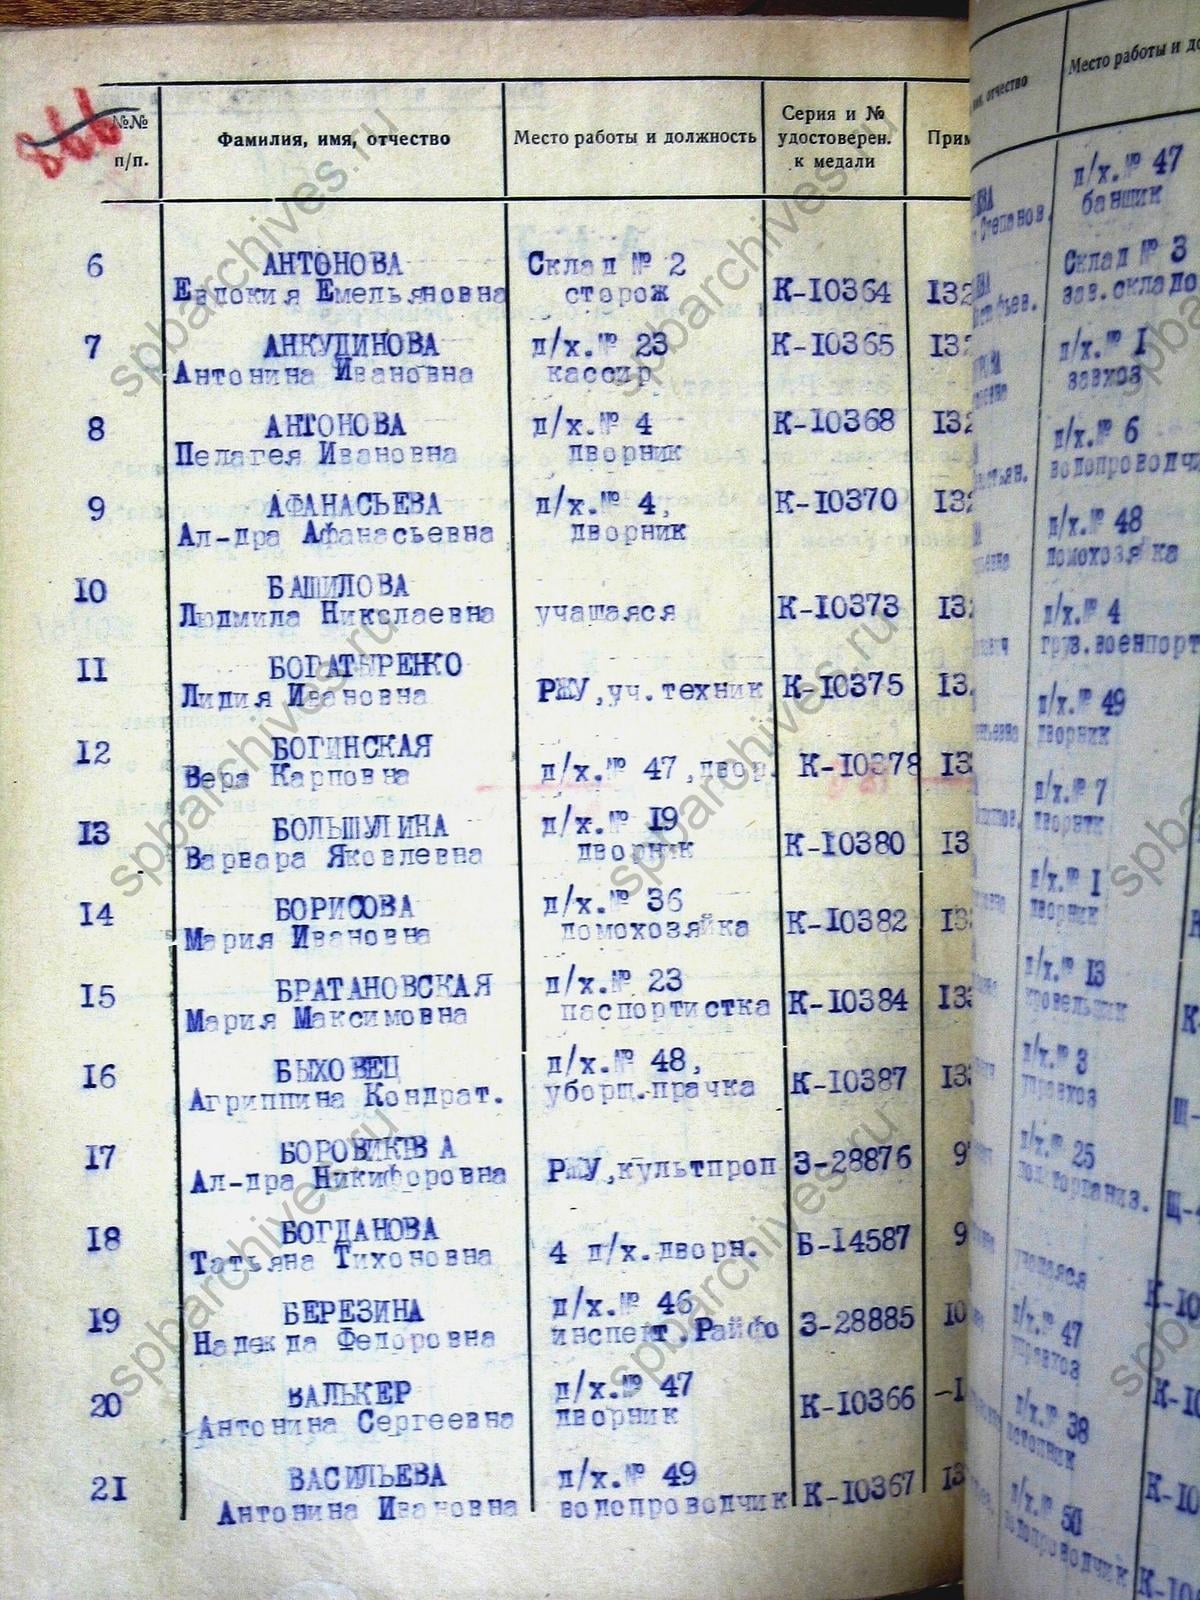 866
№№ п/п.
Фамилия, имя, отчество
Место работы и должность
Серия и №
удостоверен.
к медали
Прим
6 АНТОНОВА Склад № 2
Евдокия Емельяновна сторож К-10364 132
7 АНКУДИНОВА д/х.№ 23 К-10365 132
Антонина Ивановна кассир
8 АНТОНОВА д/х.№ 4 К-10368 132
Пелагея Ивановна дворник
9 АФАНАСЬЕВА д/х.№ 4, К-10370 132
Ал-дра Афанасьевна дворник
10 БАШИЛОВА
Людмила Николаевна учащаяся К-10373 132
11 БОГАТЫРЕНКО
Лидия Ивановна РЖУ,уч.техник К-10375 13
12 БОГИНСКАЯ
Вера Карповна д/х.№ 47,двор. К-10378 13
13 БОЛЬШУЛИНА д/х.№ 19
Варвара Яковлевна дворник К-10380 13
14 БОРИСОВА д/х.№ 36
Мария Ивановна домохозяйка К-10382 13
15 БРАТАНОВСКАЯ д/х.№ 23
Мария Максимовна паспортистка К-10384 133
16 БЫХОВЕЦ д/х.№ 48,
Агриппина Кондрат. уборщ.-прачка К-10387 133
17 БОРОВИКОВА
Ал-дра Никифоровна РЖУ,культпроп З-28876 9
18 БОГДАНОВА
Татьяна Тихоновна 4 д/х.дворн. Б-14587 9
19 БЕРЕЗИНА д/х.№ 46
Надежда Федоровна инспект.Райфо З-28885 10
20 ВАЛЬКЕР д/х.№ 47
Антонина Сергеевна дворник К-10366 -1
21 ВАСИЛЬЕВА д/х.№ 49
Антонина Ивановна водопроводчик К-10367 13
отчество
Место работы и до
д/х.№ 47
Степанов. банщик
Склад № 3
зав.складо
д/х.№ 1
завхоз
д/х.№ 6
водопроводчи
д/х.№ 48
домохозяйка
д/х.№ 4
груз.военпорт
д/х.№ 49
дворник
д/х.№ 7
дворник
д/х.№ 1
дворник
д/х.№ 13
кровельщик
д/х.№ 3
управхоз
д/х.№ 25
политорганиз.
учащаяся
К-10
д/х.№ 47
управхоз
К-10
д/х.№ 38
истопник
К-10
д/х.№ 50
водопроводчик К-10
spbarchives.ru
spbarchives.ru
spbarchives.ru
spbarchives.ru
spbarchives.ru
spbarchives.ru